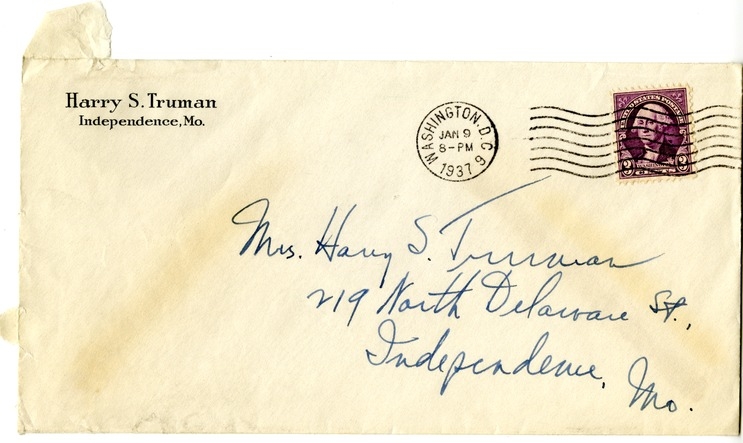 Harry S. Truman
Independence, Mo.
WASHINGTON, D.C.
JAN 9
8-PM
1937
9
UNITED STATES POSTAGE
3 3
Mrs. Harry S. Truman
219 North Delaware St.,
Independence, Mo.